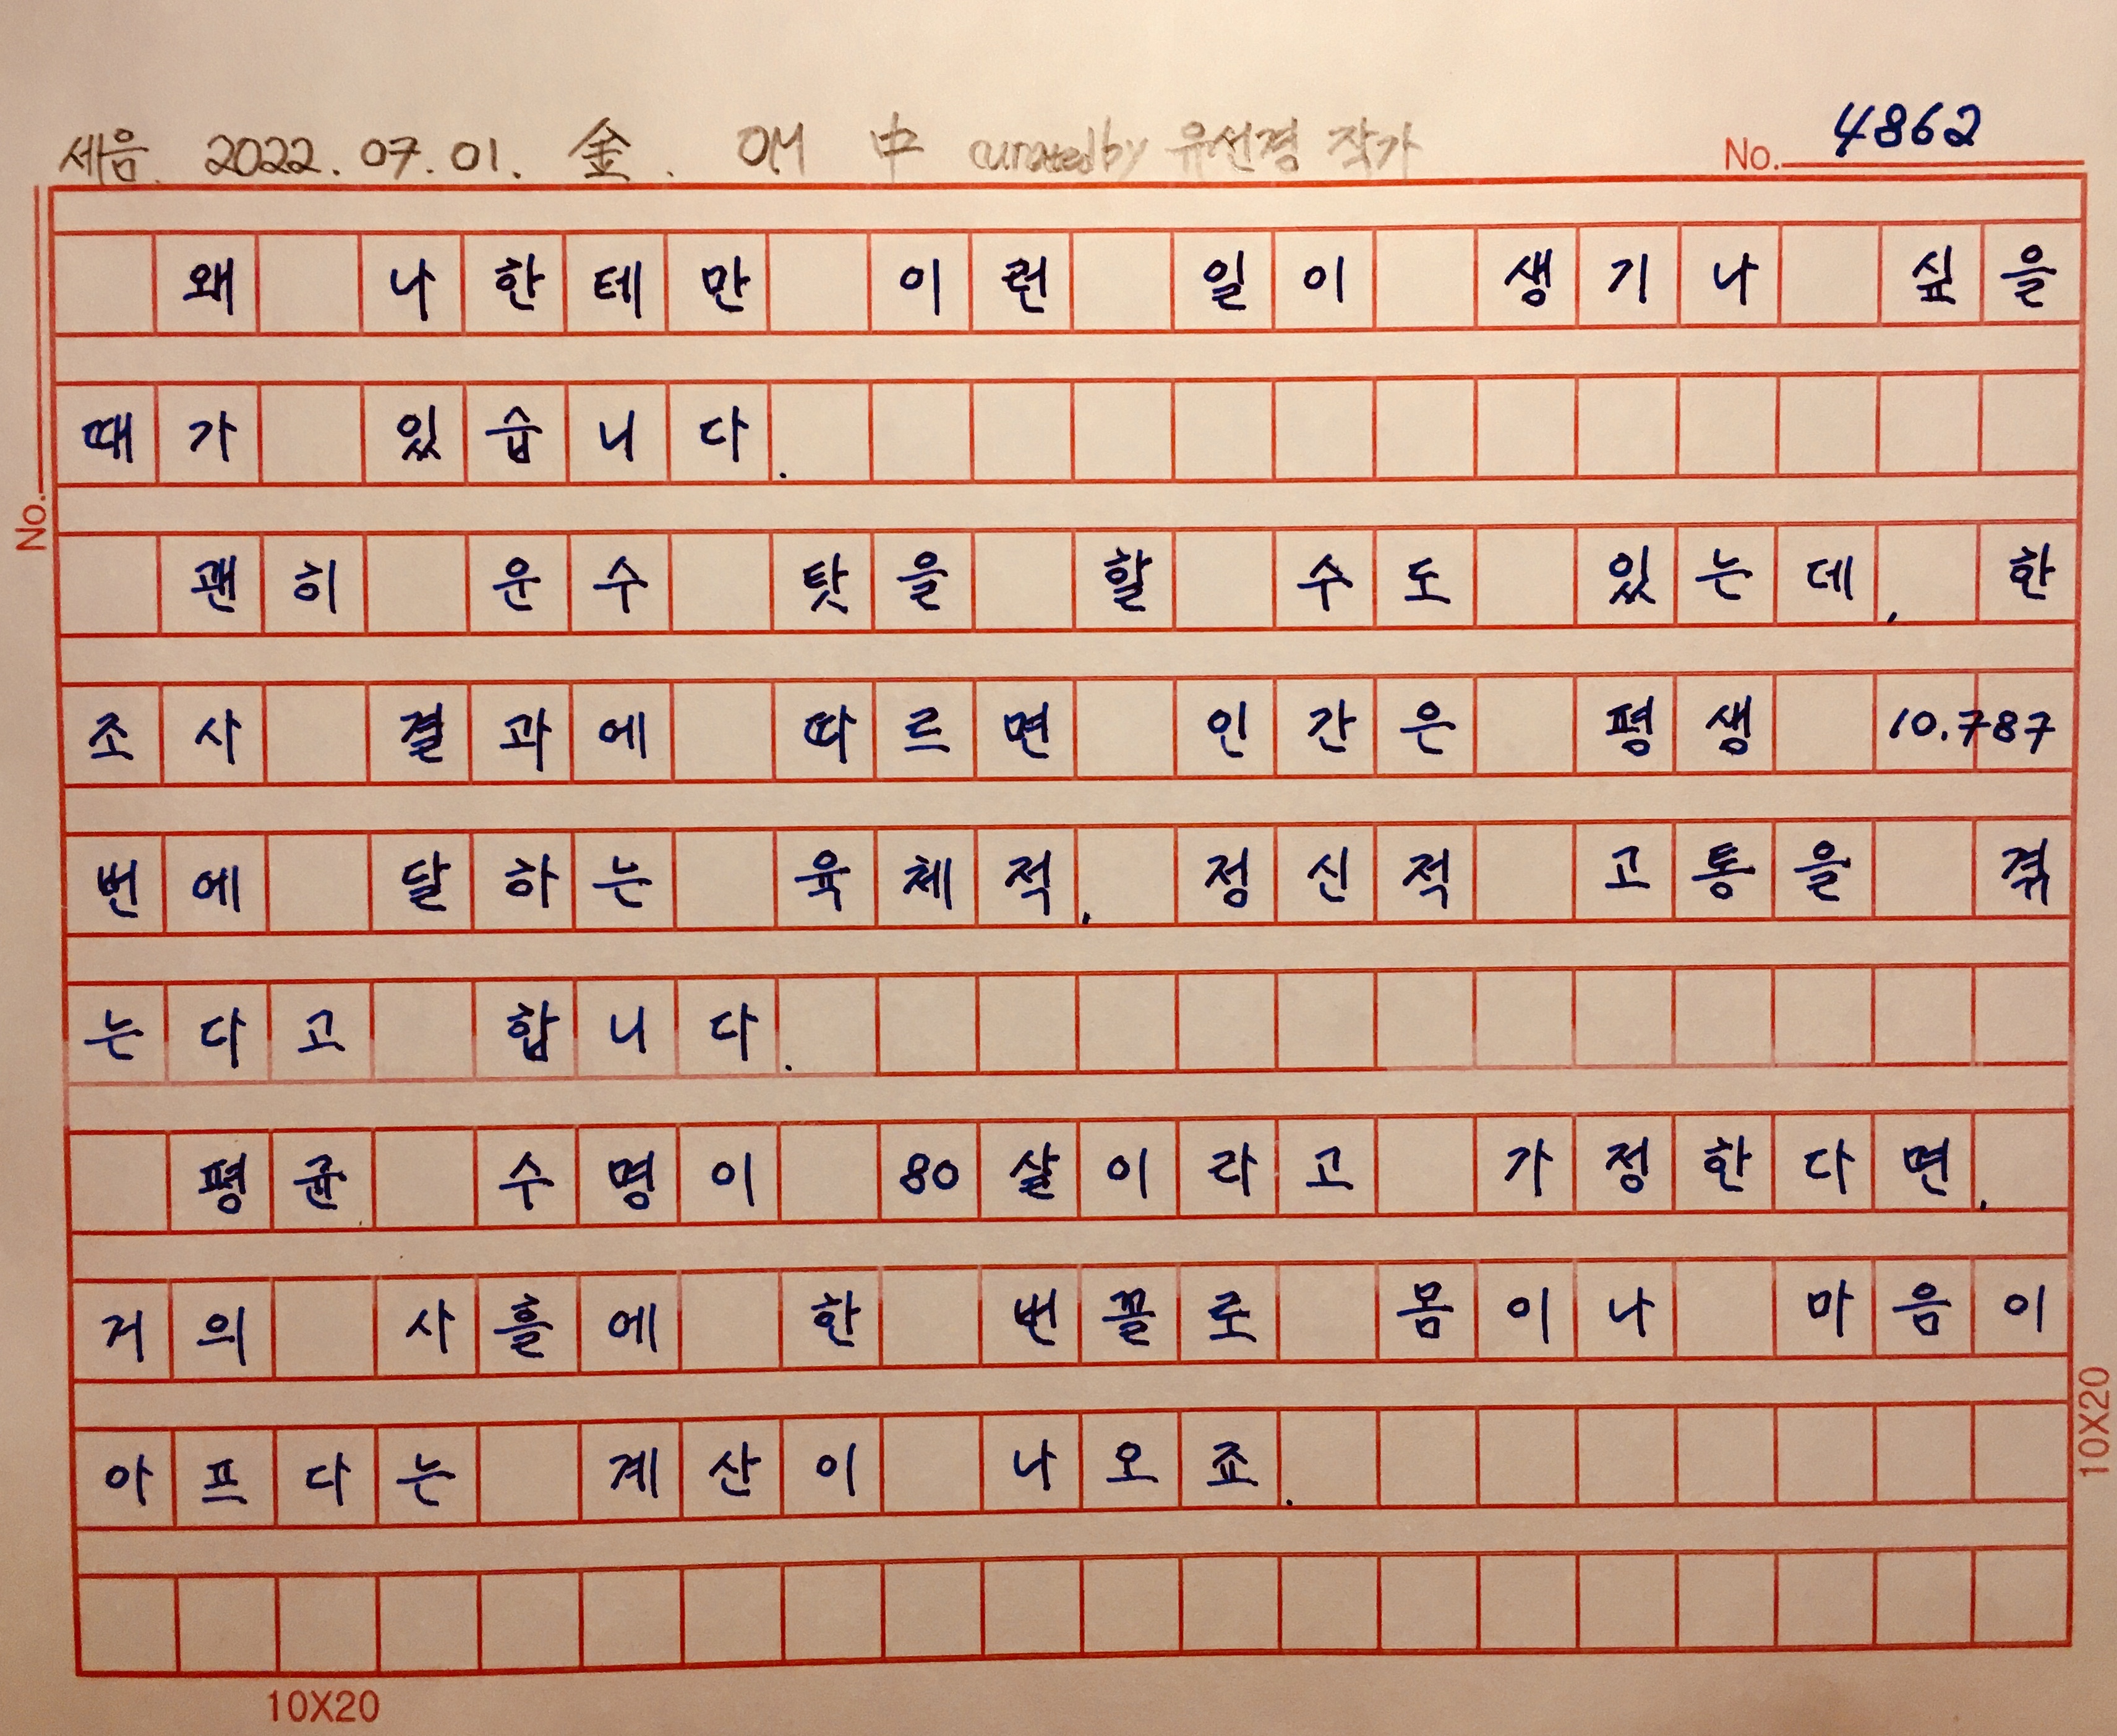 세음. 2022. 07. 01. 金. OM 中 curated by 유선경 작가
No. 4862
왜 나한테만 이런 일이 생기나 싶을
때가 있습니다.
괜히 운수 탓을 할 수도 있는데, 한
조사 결과에 따르면 인간은 평생 10.787
번에 달하는 육체적, 정신적 고통을 겪
는다고 합니다.
평균 수명이 80살이라고 가정한다면,
거의 사흘에 한 번꼴로 몸이나 마음이
아프다는 계산이 나오죠.
No.
10X20
10X20